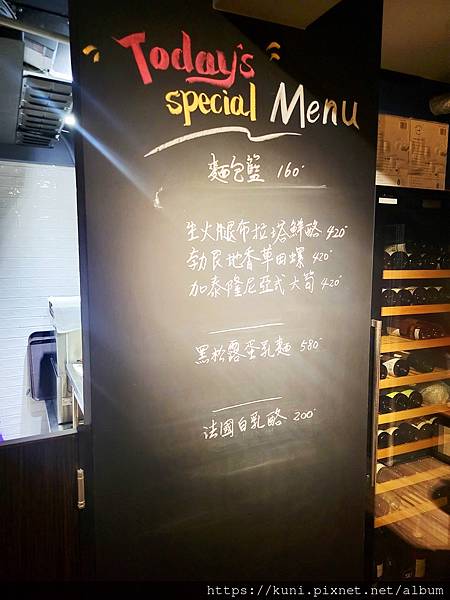 Today's
special Menu
麵包籃 160
生火腿布拉塔鮮酪 420
勃艮地香草田螺 420
加泰隆尼亞式大蔥 420
黑松露蛋乳麵 580
法國白乳酪 200
https://kuni.pixnet.net/album